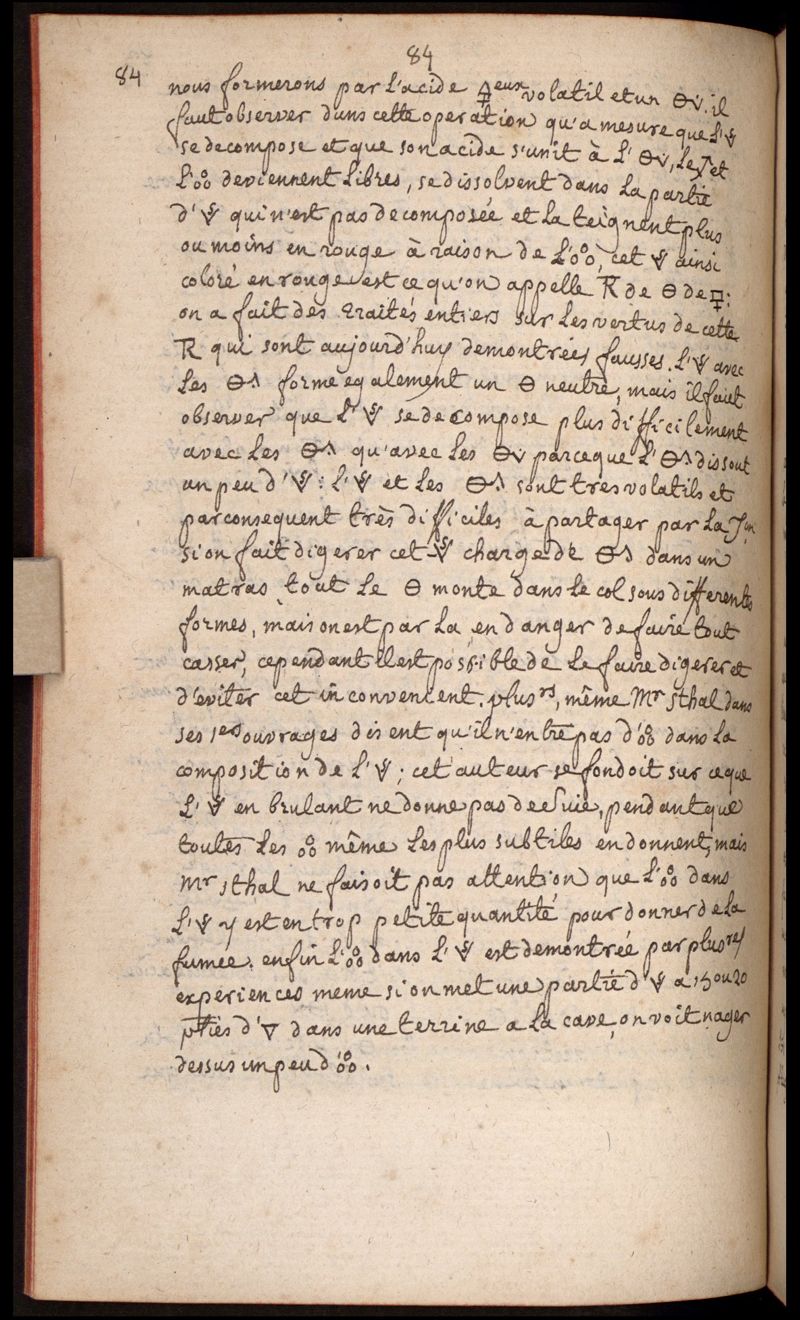 84
84
nous formerons par l'acide 🜍eux volatil et un 🜔v. il
faut observer dans cette operation qu'a mesure que l'🜈
se decompose et que son acide s'unit à l' 🜔v, le et
l'🜆 deviennent libres, se dissolvent dans la partie
d' 🜈 qui n'est pas decomposée et la teignent plus
ou moins en rouge à raison de l'🜆, cet 🜈 ainsi
coloré en rouge est ce qu'on appelle R de 🜔 de :
on a fait des traités entiers sur les vertus de cette
R qui sont aujourd'huy demontrées fausses. l'🜈 avec
les 🜔^ forme egalement un 🜔 neutre, mais il faut
observer que l' 🜈 se decompose plus difficilement
avec les 🜔^ qu'avec les 🜔v parceque l' 🜔^ dissout
un peu d' 🜈 : l' 🜈 et les 🜔^ sont tres volatils et
par consequent très difficiles à partager par la
si on fait digerer cet 🜈 chargé de 🜔^ dans un
matras tout le 🜔 monte dans le col sous differentes
formes, mais on est par la en danger de faire tout
casser, cependant il est possible de le faire digerer et
d'eviter cet inconvenient. plus.rs, même Mr sthal dans
ses 1ers ouvrages disent qu'il n'entre pas d'🜆 dans la
composition de l' 🜈 ; cet auteur se fondoit sur ce que
l' 🜈 en brulant ne donne pas de suie, pendant que
toutes les 🜆 même les plus subtiles en donnent, mais
Mr sthal ne faisoit pas attention que l'🜆 dans
l' 🜈 y est en trop petite quantité pour donner de la
fumée. enfin l'🜆 dans l' 🜈 est demontrée par plus.res
experiences meme si on met une partie d' 🜈 a 15 ou 20
pties d' 🜄 dans une terrine a la cave, on voit nager
dessus un peu d'🜆.